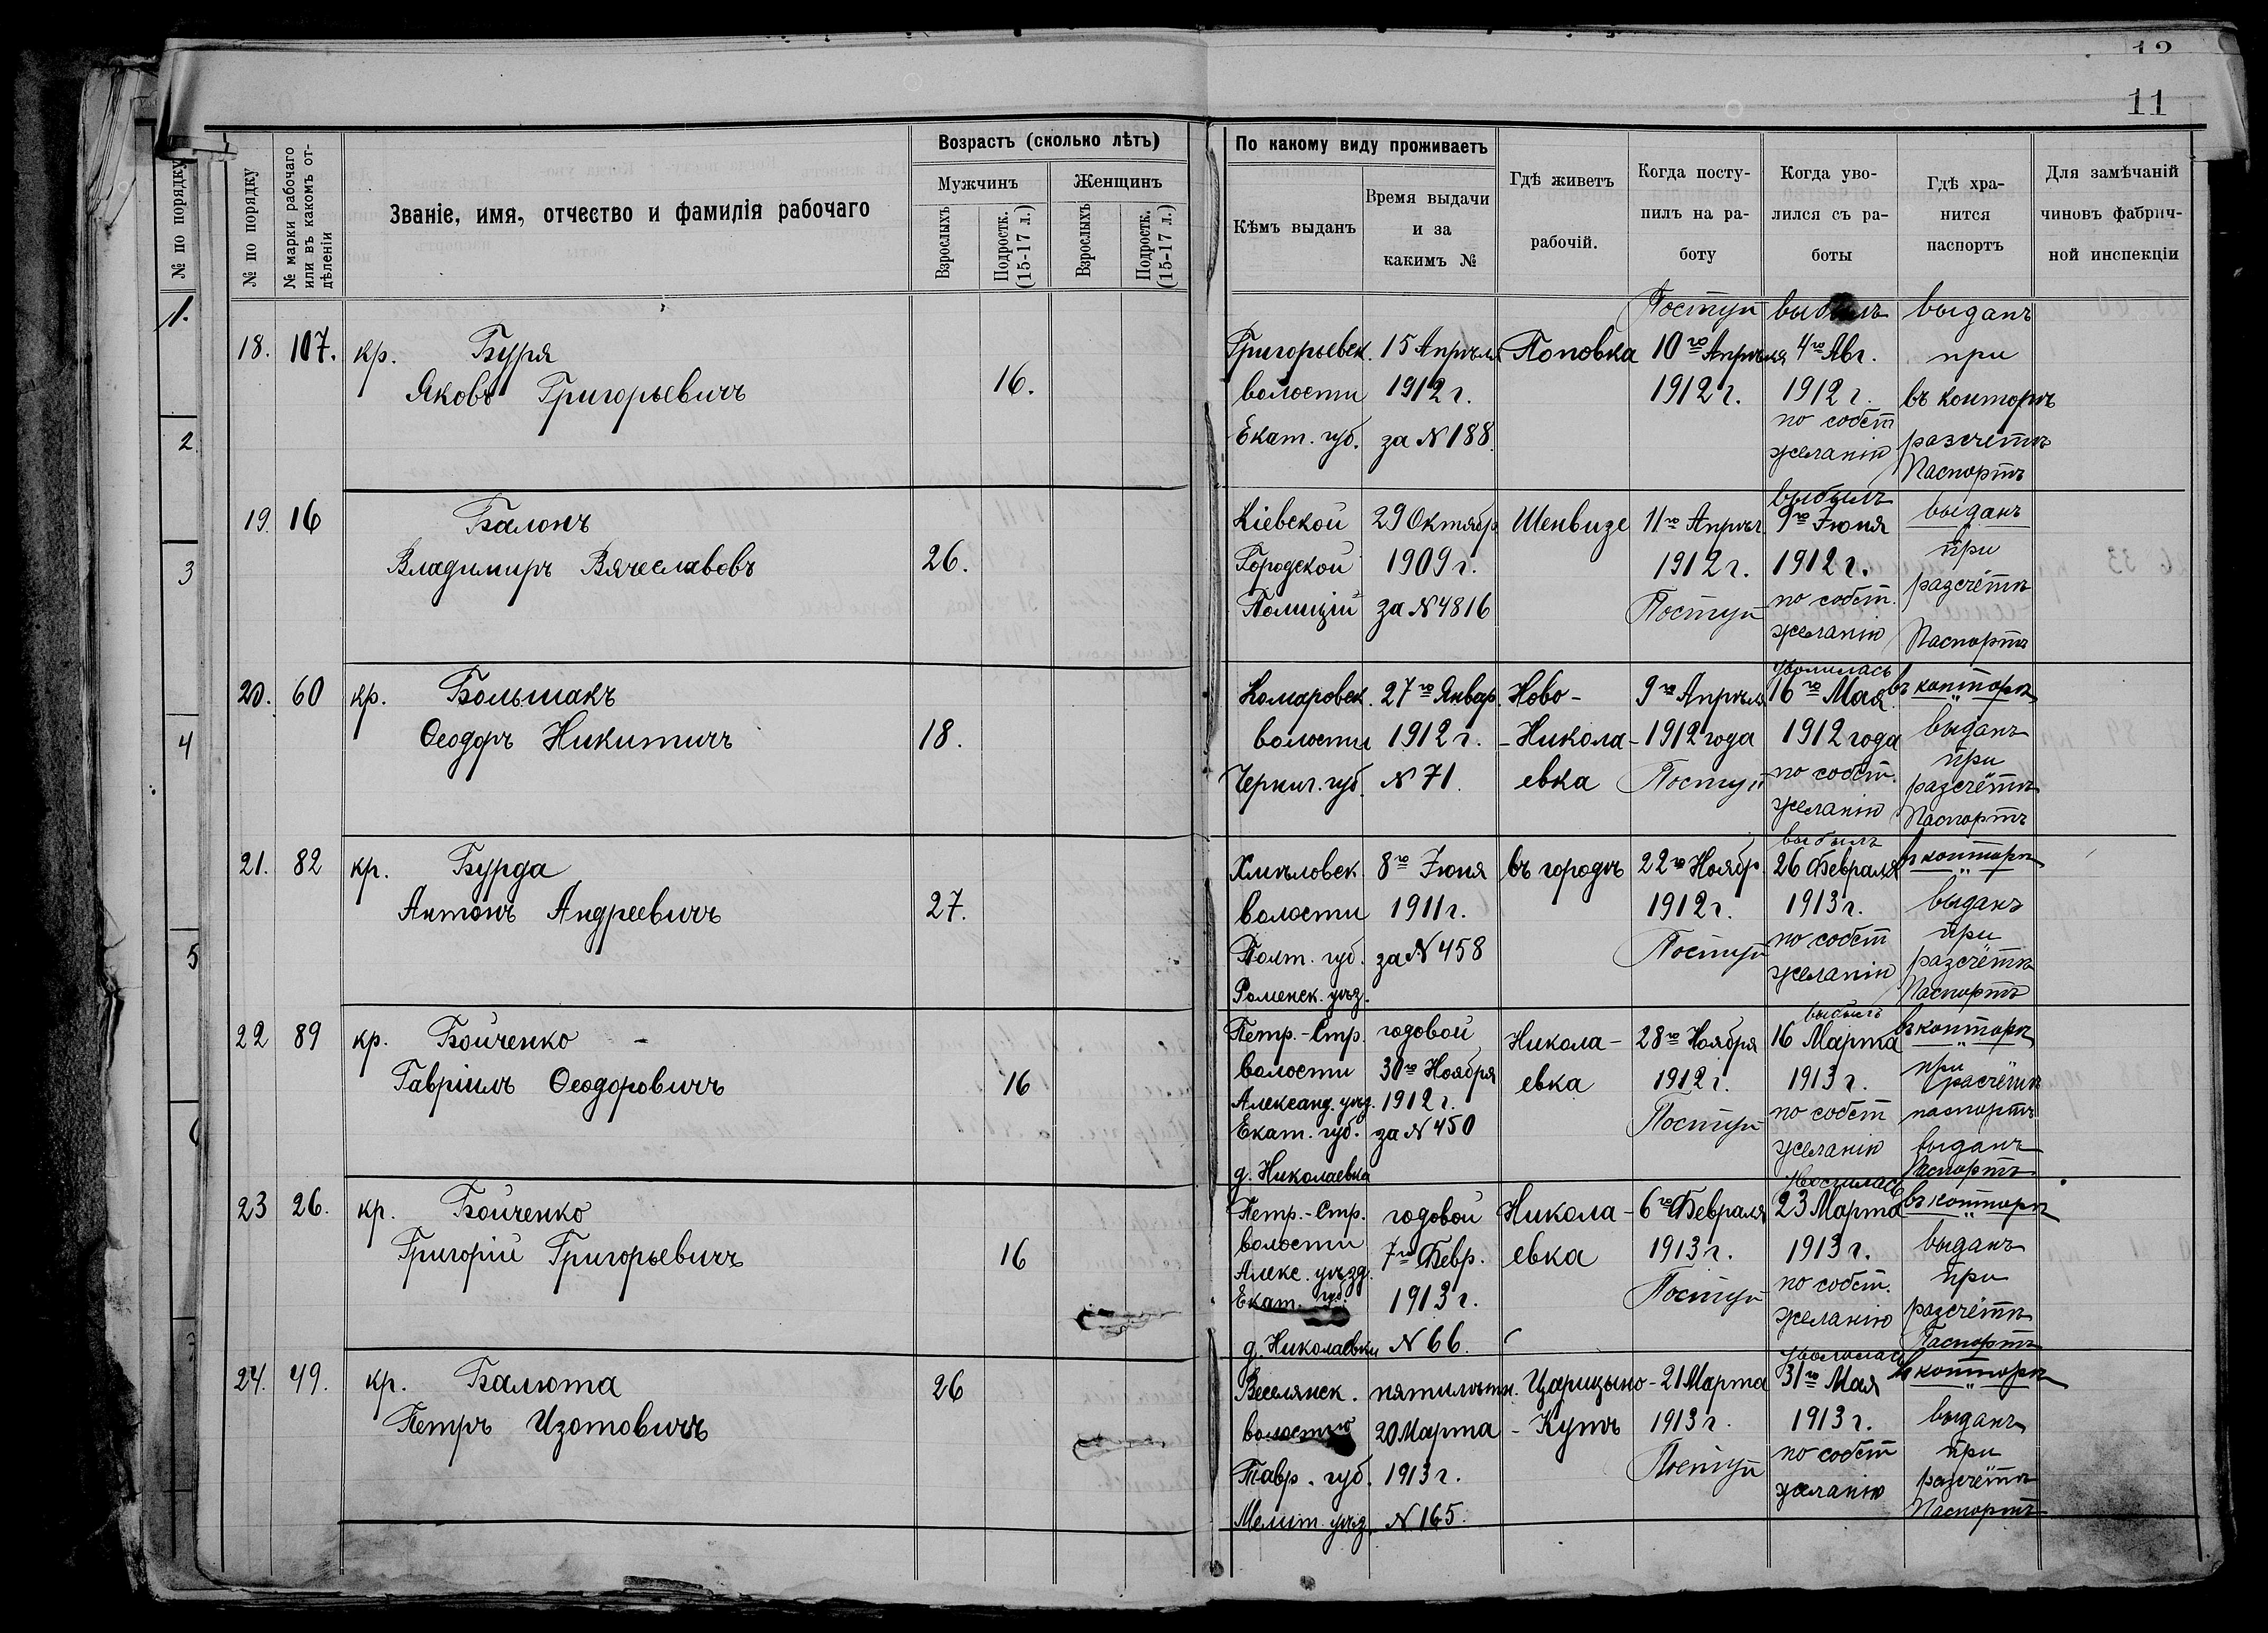 12
11
№ по порядку
1.
2
3
4
5
№ по порядку
№ марки рабочаго или въ какомъ отдѣленіи
Званіе, имя, отчество и фамилія рабочаго
Возрастъ (сколько лѣтъ)
Мужчинъ
Женщинъ
Взрослыхъ
Подростк. (15-17 л.)
Взрослыхъ
Подростк. (15-17 л.)
По какому виду проживаетъ
Кѣмъ выданъ
Время выдачи и за какимъ №
Гдѣ живетъ рабочій.
Когда поступилъ на работу
Когда уволился съ работы
Гдѣ хранится паспортъ
Для замѣчаній чиновъ фабричной инспекціи
18. 107. кр. Буря
Яковъ Григорьевичъ
16.
Григорьевск.
волости
Екат. губ.
15 Апрѣля
1912 г.
за N 188.
Поповка
Поступ
10го Апрѣля
1912 г.
выбылъ
4го Авг.
1912 г.
по собст
желанію
выданъ
при
въ конторѣ
разсчетѣ
Паспортъ
19. 16
Балонъ
Владимиръ Вячеславовъ
26.
Кіевской
Городской
Полиціи
29 Октябр
1909 г.
за N 4816
Шенвизе
11го Апрѣл
1912 г.
Поступ
выбылъ
9го Іюня
1912 г.
по собст.
желанію
выданъ
при
разсчётѣ
Паспортъ
20. 60 кр. Большакъ
Ѳеодоръ Никитичъ
18.
Комаровск.
волости
Черниг. губ.
27го Январ.
1912 г.
N 71.
Ново-
-Никола-
евка
9го Апрѣля
1912 года
Поступ
уволилась
16го Мая
1912 года
по собст.
желанію
въ конторѣ
выданъ
при
разсчётѣ
Паспортъ
21. 82 кр. Бурда
Антонъ Андреевичъ
27.
Хмѣловск
волости
Полт. губ.
Роменск. уѣзд.
8го Іюня
1911 г.
за N 458
въ городѣ
22го Ноябр.
1912 г.
Поступ
выбылъ
26 Февраля
1913 г.
по собст
желанію
въ конторѣ
выданъ
при
разсчётѣ
Паспортъ
22 89 кр. Бойченко
Гавріилъ Ѳеодоровичъ
16
Петр.-Стр.
волости
Александ. уѣзд.
Екат. губ.
д. Николаевка
годовой
30го Ноября
1912 г.
за N 450
Никола-
евка
28го Ноября
1912 г.
Поступ
выбылъ
16 Марта
1913 г.
по собст
желанію
въ конторѣ
при
расчётѣ
паспортъ
выданъ
Паспортъ
23 26. кр. Бойченко
Григорій Григорьевичъ
16
Петр.-Стр.
волости
Алекс. уѣзд.
Екат. губ.
д. Николаевки
годовой
7го Февр.
1913 г.
N 66.
Никола-
евка
6го Февраля
1913 г.
Поступ
23 Марта
1913 г.
по собст.
желанію
въ конторѣ
выданъ
при
разсчётѣ
Паспортъ
24. 49. кр. Балюта
Петръ Изотовичъ
26
Веселянск.
волостью
Тавр. губ.
Мелит. уѣзд.
пятилѣтн.
20 Марта
1913 г.
N 165.
Царицыно-
-Кутъ
21 Марта
1913 г.
Поступ
уволилась
31го Мая
1913 г.
по собст
желанію
въ конторѣ
выданъ
при
разсчётѣ
Паспортъ